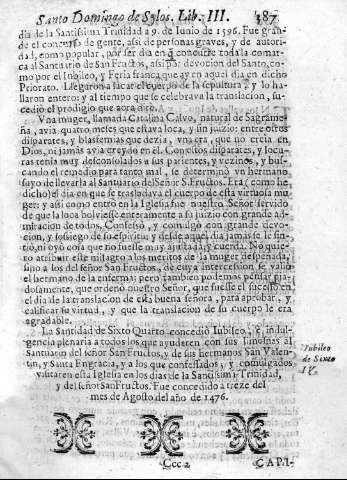 Santo Domingo de Sylos. Lib. III. 387
dia de la Santissima Trinidad a 9. de Iunio de 1596. Fue gran-
de el concurso de gente, assi de personas graves, y de autori-
dad, como popular, por ser dia en que concurre toda la comar-
ca al Santuario de San Fructos, assi por devocion del Santo, co-
mo por el Iubileo, y Feria franca que ay en aquel dia en dicho
Priorato. Llegaron a sacar el cuerpo de la sepultura, y lo ha-
llaron entero: y al tiempo que se celebrava la translacion, su-
cedió el prodigio que aora diré.
Vna muger, llamada Catalina Calvo, natural de Sagrame-
ña, avia quatro meses que estava loca, y sin juizio: entre otros
disparates, y blasfemias que dezia, vna era, que no creia en
Dios, ni jamàs avia creydo en èl. Con estos disparates, y locu-
ras tenia muy desconsolados a sus parientes, y vezinos, y bus-
cando el remedio para tanto mal, se determinò vn herma no
suyo de llevarla al Santuario del Señor S. Fructos. Era (como he
dicho) el dia en que se trasladava el cuerpo de esta virtuosa mu-
ger: y assi como entrò en la Iglesia fue nuestro Señor servido
de que la loca bolviesse enteramente a su juizio con grande ad-
miracion de todos. Confessò, y comulgó con grande devo-
cion, y sossiego de su espiritu; y desde aquel dia jamàs se le sin-
tiò, ni oyò cosa que no fuesse muy ajustada, y cuerda. No quie-
ro atribuir este milagro a los meritos de la muger despenada,
sino a los del señor San Fructos, de cuya intercession se valiò
el hermano de la enferma; pero tambien podemos pensar pia-
dosamente, que ordenò nuestro Señor, que fuesse el sucesso en
el dia de la translacion de esta buena señora, para aprobar, y
calificar su virtud, y que la translacion de su cuerpo le era
agradable.
La Santidad de Sixto Quarto concediò Iubileo, è indul-
gencia plenaria a todos los que ayuderen con sus limosnas al
Santuario del señor San Fructos, y de sus hermanos San Valen-
tin, y Santa Engracia, y a los que confessados, y comulgados
visitaren esta Iglesia en los dias de la Santissima Trinidad,
y del señor San Fructos. Fue concedido a treze del
mes de Agosto del año de 1476.
Iubileo
de Sixto
IV.
Ccc 2 CAPI-